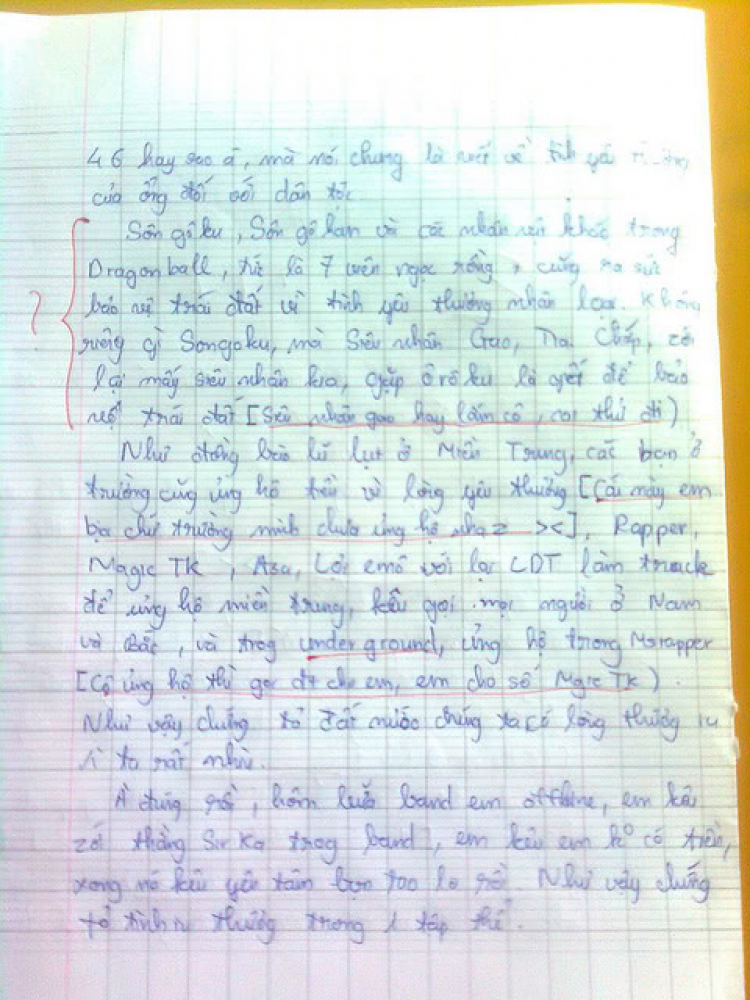 46 hay sao á, mà nói chung là viết về tình yêu
của ổng đối với dân tộc
Sôn gôku, Sôn gô han và các nhân vật khác trong
Dragonball, tức là 7 viên ngọc rồng, cũng ra sức
bảo vệ trái đất vì tình yêu thương nhân loại. Không
riêng gì Songoku, mà Siêu nhân Gao, Tia Chớp, zới
lại mấy siêu nhân kia, gặp ôrôku là giết để bảo
vệ trái đất [Siêu nhân gao hay lắm cô, coi thử đi)
Như đồng bào lũ lụt ở Miền Trung, các bạn ở
trường cũng ủng hộ tiền vì lòng yêu thương [Cái mày em
bịa chứ trường mình chưa ủng hộ nhaz ><], Rapper,
Magic TK, Asa, Lợi emô với lại CDT làm track
để ủng hộ miền trung, kêu gọi mọi người ở Nam
và Bắc, và trog underground, ủng hộ trong Msrapper
[Cô ủng hộ thì gọi đt cho em, em cho số Mgic TK).
Như vậy chứng tỏ đất nước chúng ta có lòng thương
ta rất nhìu.
À đúng rồi, hôm bữa band em offline, em kêu
zới thằng Sir Ka trog band, em kêu em ko có tiền,
xong nó kêu yên tâm bọn tao lo rồi. Như vậy chứng
tỏ tình thương trong 1 tập thể.
?